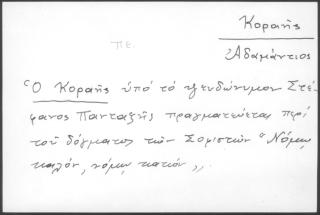 Κοραῆς
πε.
Ἀδαμάντιος
Ὁ Κοραῆς ὑπό τό ψευδώνυμον Στέ-
φανος Πανταζῆς πραγματεύεται περί
τοῦ δόγματος τῶν Σοφιστῶν "Νόμῳ
καλόν, νόμῳ κακόν".